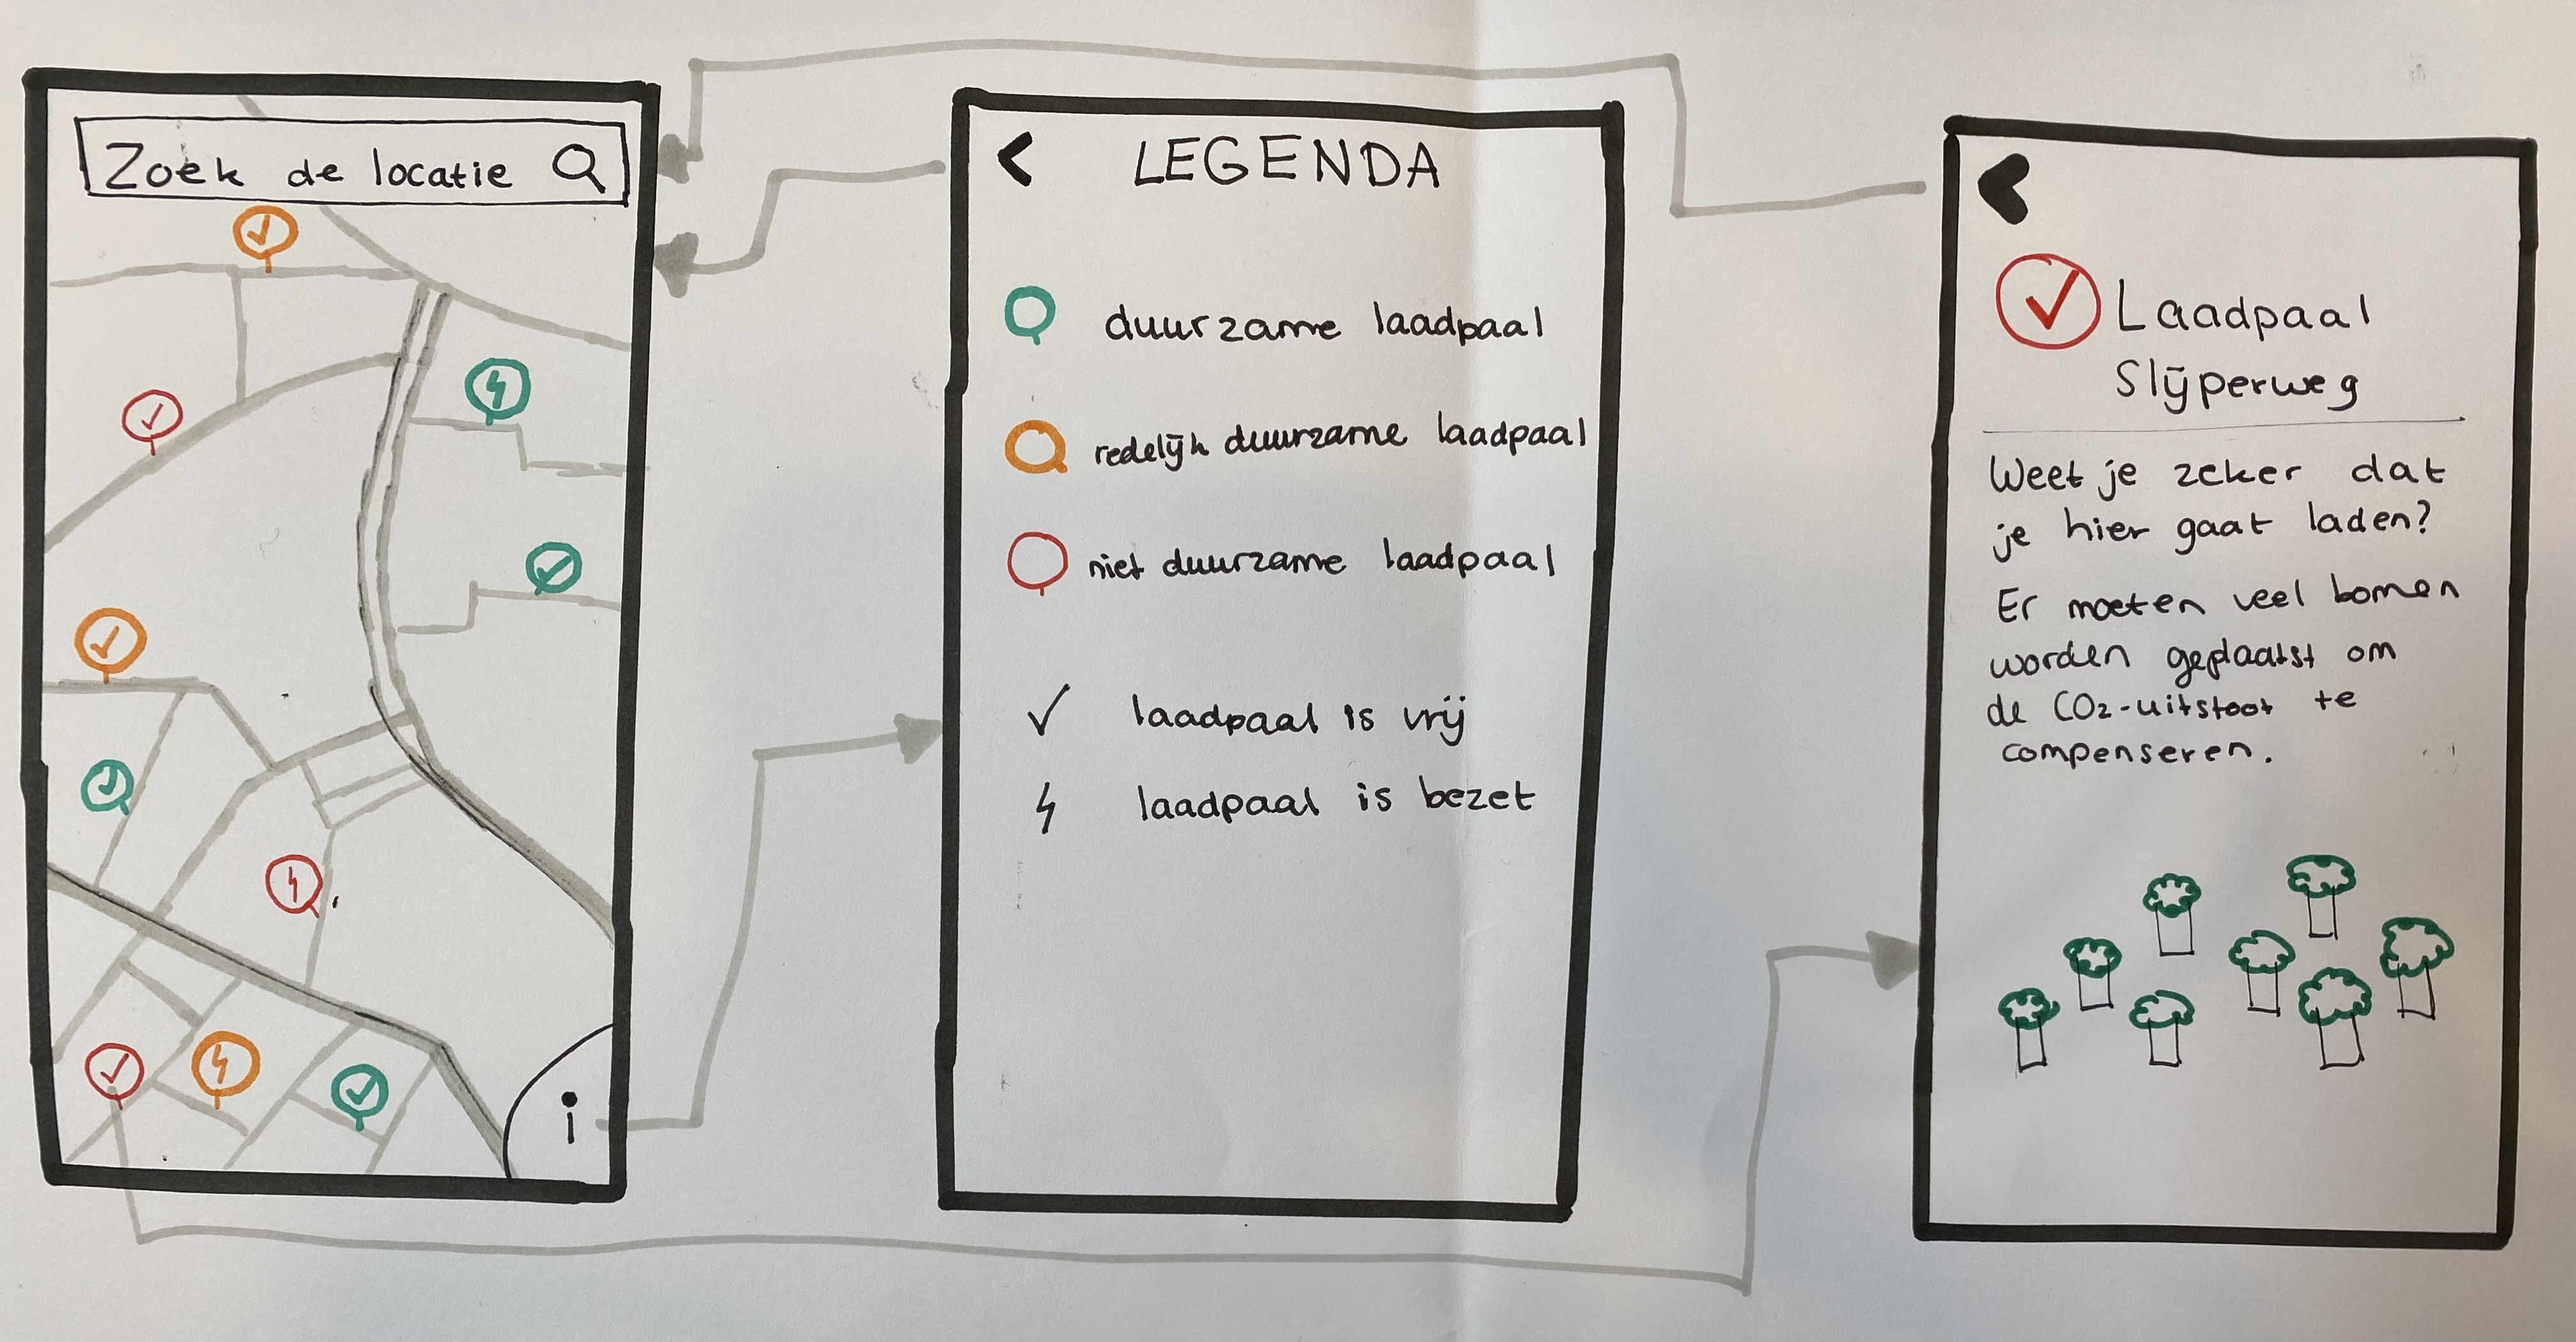 Zoek de locatie
i
LEGENDA
duurzame laadpaal
redelijk duurzame laadpaal
niet duurzame laadpaal
laadpaal is vrij
laadpaal is bezet
Laadpaal
Slijperweg
Weet je zeker dat
je hier gaat laden?
Er moeten veel bomen
worden geplaatst om
de CO₂-uitstoot te
compenseren.